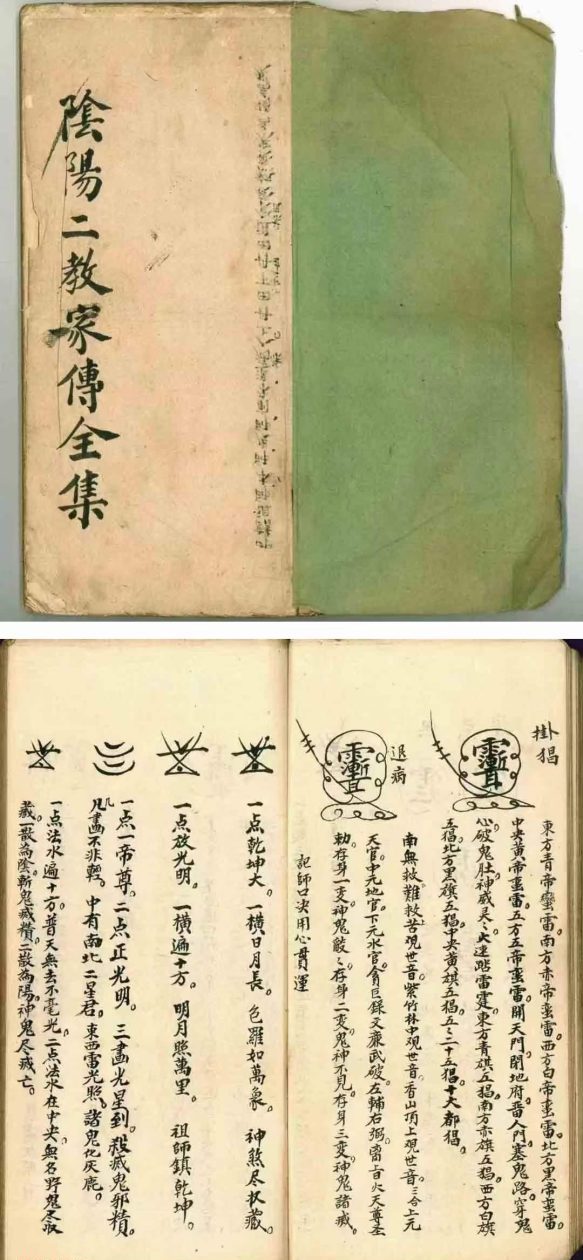 陰陽二教家傳全集
掛猖
東方青帝蛮雷。南方赤帝蛮雷。西方白帝蛮雷。北方黑帝蛮雷。
中央黄帝蛮雷。五方五帝蛮雷。開天門。閉地府。留人門。塞鬼路。穿鬼
心。破鬼肚。神威灵灵。火速踏雷霆。東方青旗五猖。南方赤旗五猖。西方白旗
五猖。北方黑旗五猖。中央黄旗五猖。五五二十五猖。十大都猖。
退病
南無救難救苦观世音。紫竹林中观世音。香山頂上观世音。三合上元
天官。中元地官。下元水官。貪巨錄文廉武破。左輔右弼。火天尊
勅。存身一变神鬼。存身二变鬼神不見。存身三变神鬼諸滅。
記師口决用心貫運
一点乾坤大。一横日月長。包羅如萬象。神煞尽收藏。
一点放光明。一横遍十方。明月照萬里。祖師鎮乾坤。
一点一帝尊。二点正光明。三畫光星到。殺滅鬼邪精。
凡畫不非輕。中有南北二星君。東西雷光照。諸鬼化灰塵。
一点法水遍十方。普天無去不毫光。二点法水在中央。無名野鬼尽收
藏。一散為陰。斬鬼滅精。二散為陽。神鬼尽滅亡。